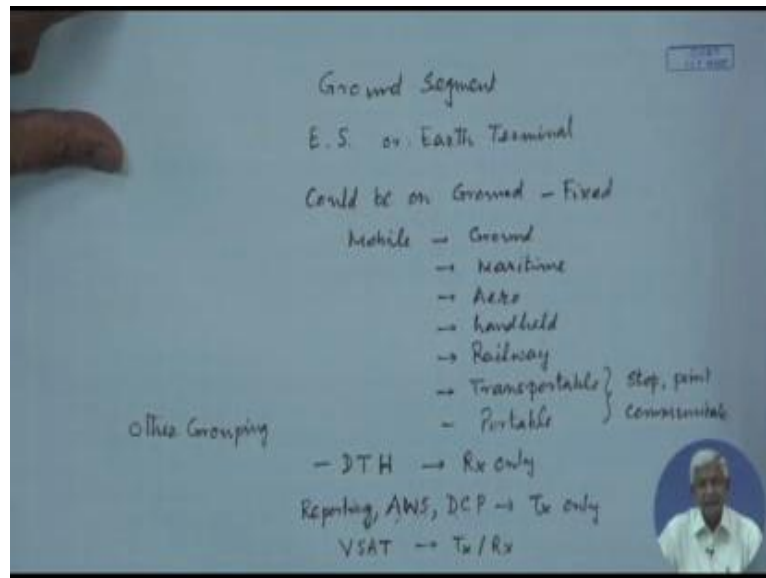 Ground Segment
E.S. or Earth Terminal
Could be on Ground - Fixed
Mobile → Ground
→ Maritime
→ Aero
→ handheld
→ Railway
→ Transportable } Stop, point
- Portable } Communicate
Other Grouping
- DTH → Rx only
Reporting, AWS, DCP → Tx only
VSAT → Tx/Rx